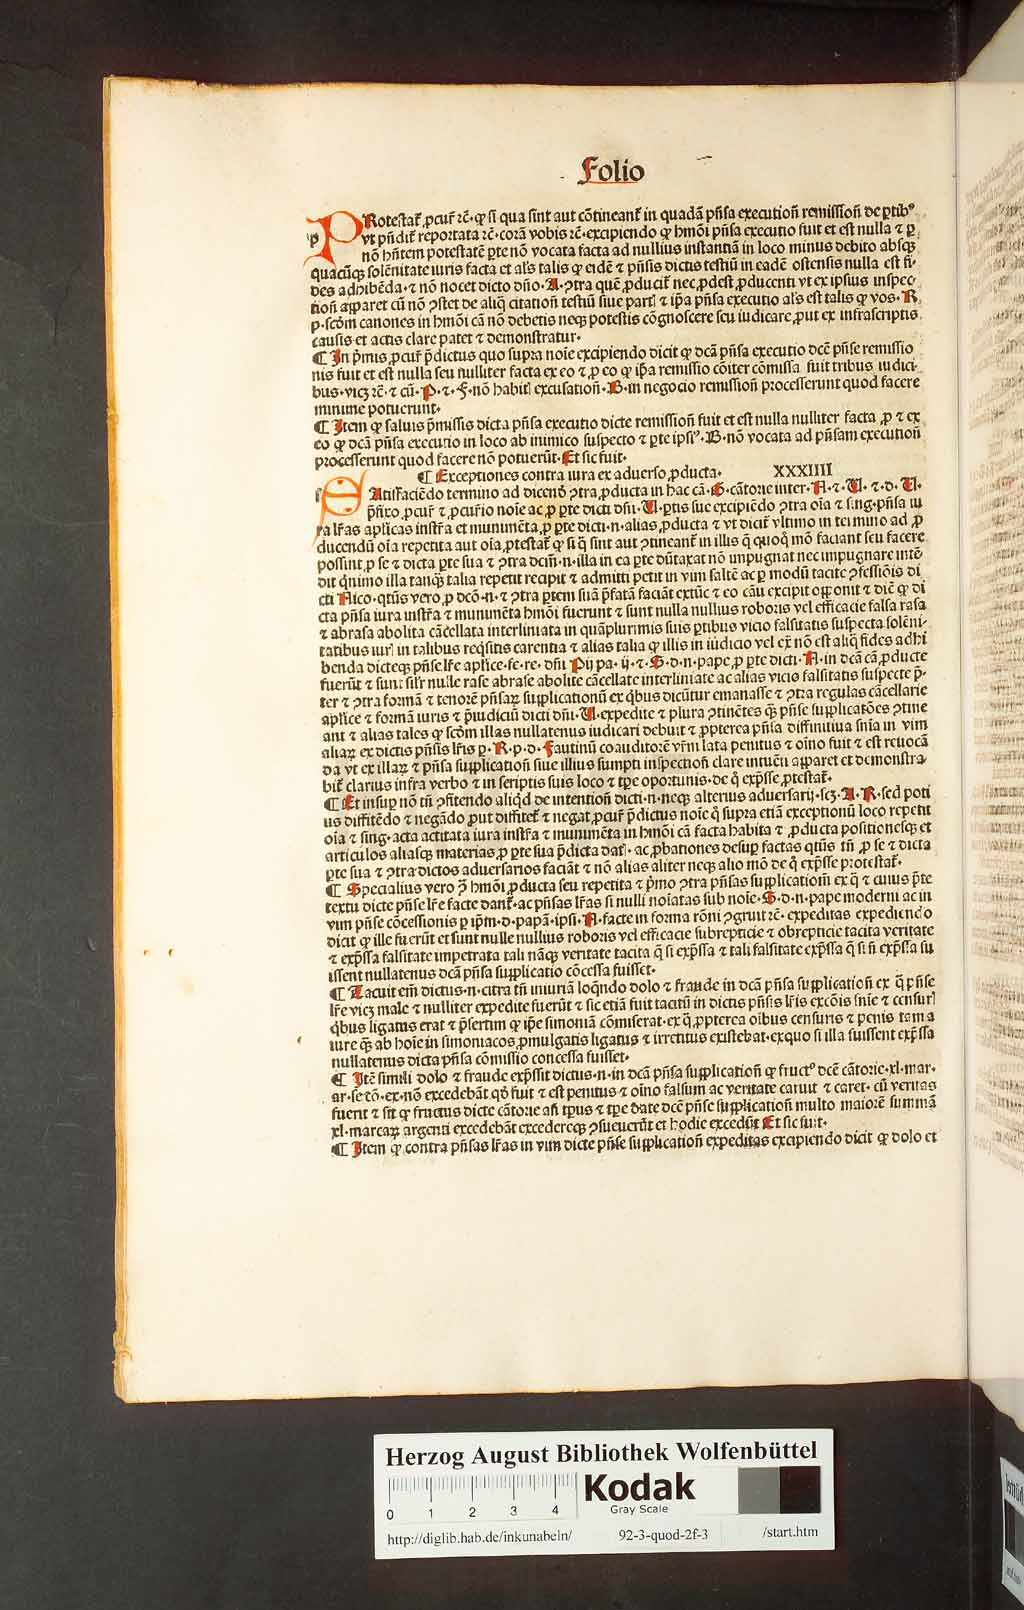 Folio
PRotestat̄ ꝓcur̄ ⁊c̄· ꝙ si qua sint aut cōtineant̄ in quadā pn̄sa execution̄ remission̄ de ꝑtibꝰ
p vt pn̄dit̄ reportata ⁊c̄· corā vobis ⁊c̄· excipiendo ꝙ hmōi pn̄sa executio fuit et est nulla ⁊ ꝑ
nō hn̄tem potestatē ꝑte nō vocata facta ad nullius instantiā in loco minus debito absqꝫ
quacūqꝫ solēnitate iuris facta et al's talis ꝙ eidē ⁊ pn̄sis dictus testiū in eadē ostensis nulla est fi-
des adhibēda· ⁊ nō nocet dicto dn̄o· A· ꝯtra quē ꝓducit̄ nec ꝓdest ꝓducenti vt ex ipsius inspec
tion̄ apparet cū nō ꝯstet de aliq̄ citation̄ testiū siue parti ⁊ ip̄a pn̄sa executio al's est talis ꝙ vos· R
p· scd̄m canones in hmōi cā nō debetis neqꝫ potestis cōgnoscere seu iudicare ꝓut ex infrascriptis
causis et actis clare patet ⁊ demonstratur·
¶ In p̄mis ꝓcur̄ p̄dictus quo supra noīe excipiendo dicit ꝙ dcā pn̄sa executio dcē pn̄se remissio
nis fuit et est nulla seu nulliter facta ex eo ⁊ ꝑ eo ꝙ ip̄a remissio cōiter cōmissa fuit tribus iudici-
bus· vicꝫ ⁊c̄· ⁊ cū· P· ⁊· F· nō habita excusation̄· B· in negocio remission̄ processerunt quod facere
minime potuerunt·
¶ Item ꝙ saluis p̄missis dicta pn̄sa executio dicte remission̄ fuit et est nulla nulliter facta ꝓ ⁊ ex
eo ꝙ dcā pn̄sa executio in loco ab inimico suspecto ⁊ ꝑte ipsiꝰ· B· nō vocata ad pn̄sam execution̄
processerunt quod facere nō potuerūt· Et sic fuit·
¶ Exceptiones contra iura ex aduerso ꝓducta· XXXIIII
SAtisfaciēdo termino ad dicend̄ ꝯtra ꝓducta in hac cā· S· cātorie inter· A· ⁊· U· ⁊· d· U·
pn̄tꝓ ꝓcur̄ ⁊ ꝓcur̄io noīe ac ꝓ ꝑte dicti dn̄i· U· ꝑtis sue excipiēdo ꝯtra oīa ⁊ sing· pn̄sa iu
ra lr̄as aplicas instr̄a et munimēta ꝓ ꝑte dicti· n· alias ꝓducta ⁊ vt dicit̄ vltimo in termino ad ꝓ
ducendū oīa repetita aut oīa ꝓtestat̄ ꝙ si q̄ sint aut ꝯtineant̄ in illis q̄ quoqꝫ mō faciant seu facere
possint ꝓ se ⁊ dicta ꝑte sua ⁊ ꝯtra dcm̄· n· illa in ea ꝑte dūtaxat nō impugnat nec impugnare intē
dit q̄nimo illa tanqꝫ talia repetit recipit ⁊ admitti petit in vim saltē ac ꝑ modū tacite ꝯfessiōis di
cti Nico· qtū̄s vero ꝓ dcō· n· ⁊ ꝯtra ꝑtem suā p̄fatā faciāt extūc ⁊ eo cāu excipit opponit ⁊ dic̄ ꝙ di
cta pn̄sa iura instr̄a ⁊ munimēta hmōi fuerunt ⁊ sunt nulla nullius roboris vel efficacie falsa rasa
⁊ abrasa abolita cācellata interliniata in quāplurimis suis ꝑtibus vicio falsitatis suspecta solēni-
tatibus iuri in talibus reqͥsitis carentia ⁊ alias talia ꝙ illis in iudicio vel ex̄ nō est aliq̄ fides adhi
benda dicteqꝫ pn̄se lr̄e aplice· fe· re· dn̄i Pij pa· ij· ⁊· S· d· n· pape ꝓ ꝑte dicti· A· in dcā cā ꝓducte
fuerūt ⁊ sunt sil̄r nulle rase abrase abolite cācellate interliniate ac alias vicio falsitatis suspecte p̄-
ter ⁊ ꝯtra formā ⁊ tenorē pn̄saꝝ supplicationū ex qͥbus dicūtur emanasse ⁊ ꝯtra regulas cācellarie
aplice ⁊ formā iuris ⁊ p̄iudiciū dicti dn̄i· U· expedite ⁊ plura ꝯtinētes qꝫ pn̄se supplicatōes ꝯtine
ant ⁊ alias tales ꝙ scd̄m illas nullatenus iudicari debuit ⁊ ꝓpterea pn̄sa diffinitiua sn̄ia in vim
aliaꝝ ex dictis pn̄sis lr̄is ꝑ· R· p· d· Fautinū coauditorē vr̄m̄ lata penitus ⁊ oīno fuit ⁊ est reuocā
da vt ex illaꝝ ⁊ pn̄sa supplication̄ siue illius sumpti inspection̄ clare intuēti apparet et demonstra-
bit̄ clarius infra verbo ⁊ in scriptis suis loco ⁊ tp̄e oportunis· de q̄ exp̄sse ꝓtestat̄·
¶ Et insup nō tn̄ ꝯn̄tendo aliqͥd de intention̄ dicti· n· neqꝫ alterius aduersarij· scꝫ· A· R· sed poti
us diffitēdo ⁊ negādo ꝓut diffitet̄ ⁊ negat ꝓcur̄ p̄dictus noīe q̄ supra etiā exceptionū loco repetit
oīa ⁊ sing· acta actitata iura instr̄a ⁊ munimēta in hmōi cā facta habita ⁊ ꝓducta positionesqꝫ et
articulos aliasqꝫ materias ꝓ ꝑte sua p̄dicta dat̄· ac ꝓbationes desuꝑ factas qtū̄s tn̄ ꝓ se ⁊ dicta
ꝑte sua ⁊ ꝯtra dictos aduersarios faciāt ⁊ nō alias aliter neqꝫ alio mō de q̄ exp̄sse protestat̄·
¶ Specialius vero ꝯ hmōi ꝓducta seu repetita ⁊ p̄mo ꝯtra pn̄sas supplication̄ ex q̄ ⁊ cuius p̄te
textu dicte pn̄se lr̄e facte dant̄· ac pn̄sas lr̄as si nulli noīatas sub noīe· S· d· n· pape moderni ac in
vim pn̄se cōcessionis ꝑ ip̄m· d· papā· ipsi· A· facte in forma rōni ꝯgruit ⁊c̄· expeditas expediendo
dicit ꝙ ille fuerūt et sunt nulle nullius roboris vel efficacie subrepticie ⁊ obrepticie tacita veritate
⁊ exp̄ssa falsitate impetrata tali nāqꝫ veritate tacita q̄ si exp̄ssa ⁊ tali falsitate exp̄ssa q̄ si n̄ exp̄ssa fu
issent nullatenus dcā pn̄sa supplicatio cōcessa fuisset·
¶ Tacuit em̄ dictus· n· citra tn̄ iniuriā loqn̄do dolo ⁊ fraude in dcā pn̄sa supplication̄ ex q̄ pn̄se
lr̄e vicꝫ male ⁊ nulliter expedite fuerūt ⁊ sic etiā fuit tacitū in dictis pn̄sis lr̄is excōis sn̄ie ⁊ censur̄
qͥbus ligatus erat ⁊ p̄sertim ꝙ ip̄e simoniā cōmiserat· ex q̄ ꝓpterea oībus censuris ⁊ penis tam a
iure qꝫ ab hoīe in simoniacos ꝓmulgatis ligatus ⁊ irretitus existebat· ex quo si illa fuissent exp̄ssa
nullatenus dicta pn̄sa cōmissio concessa fuisset·
¶ Itē simili dolo ⁊ fraude exp̄ssit dictus· n· in dcā pn̄sa supplication̄ ꝙ fructꝰ dcē cātorie· xl· mar·
ar· se tō· ex· nō excedebāt qd̄ fuit ⁊ est penitus ⁊ oīno falsum ac veritate caruit ⁊ caret· cū veritas
fuerit ⁊ sit ꝙ fructus dicte cātorie an̄ tp̄us ⁊ tp̄e date dcē pn̄se supplication̄ multo maiorē summā
xl· marcaꝝ argenti excedebāt excedereqꝫ ꝯsueuerūt et hodie excedūt Et sic fuit·
¶ Item ꝙ contra pn̄sas lr̄as in vim dicte pn̄se supplication̄ expeditas excipiendo dicit ꝙ dolo et
Herzog August Bibliothek Wolfenbüttel
0 1 2 3 4
Kodak
Gray Scale
http://diglib.hab.de/inkunabeln/ 92-3-quod-2f-3 /start.htm